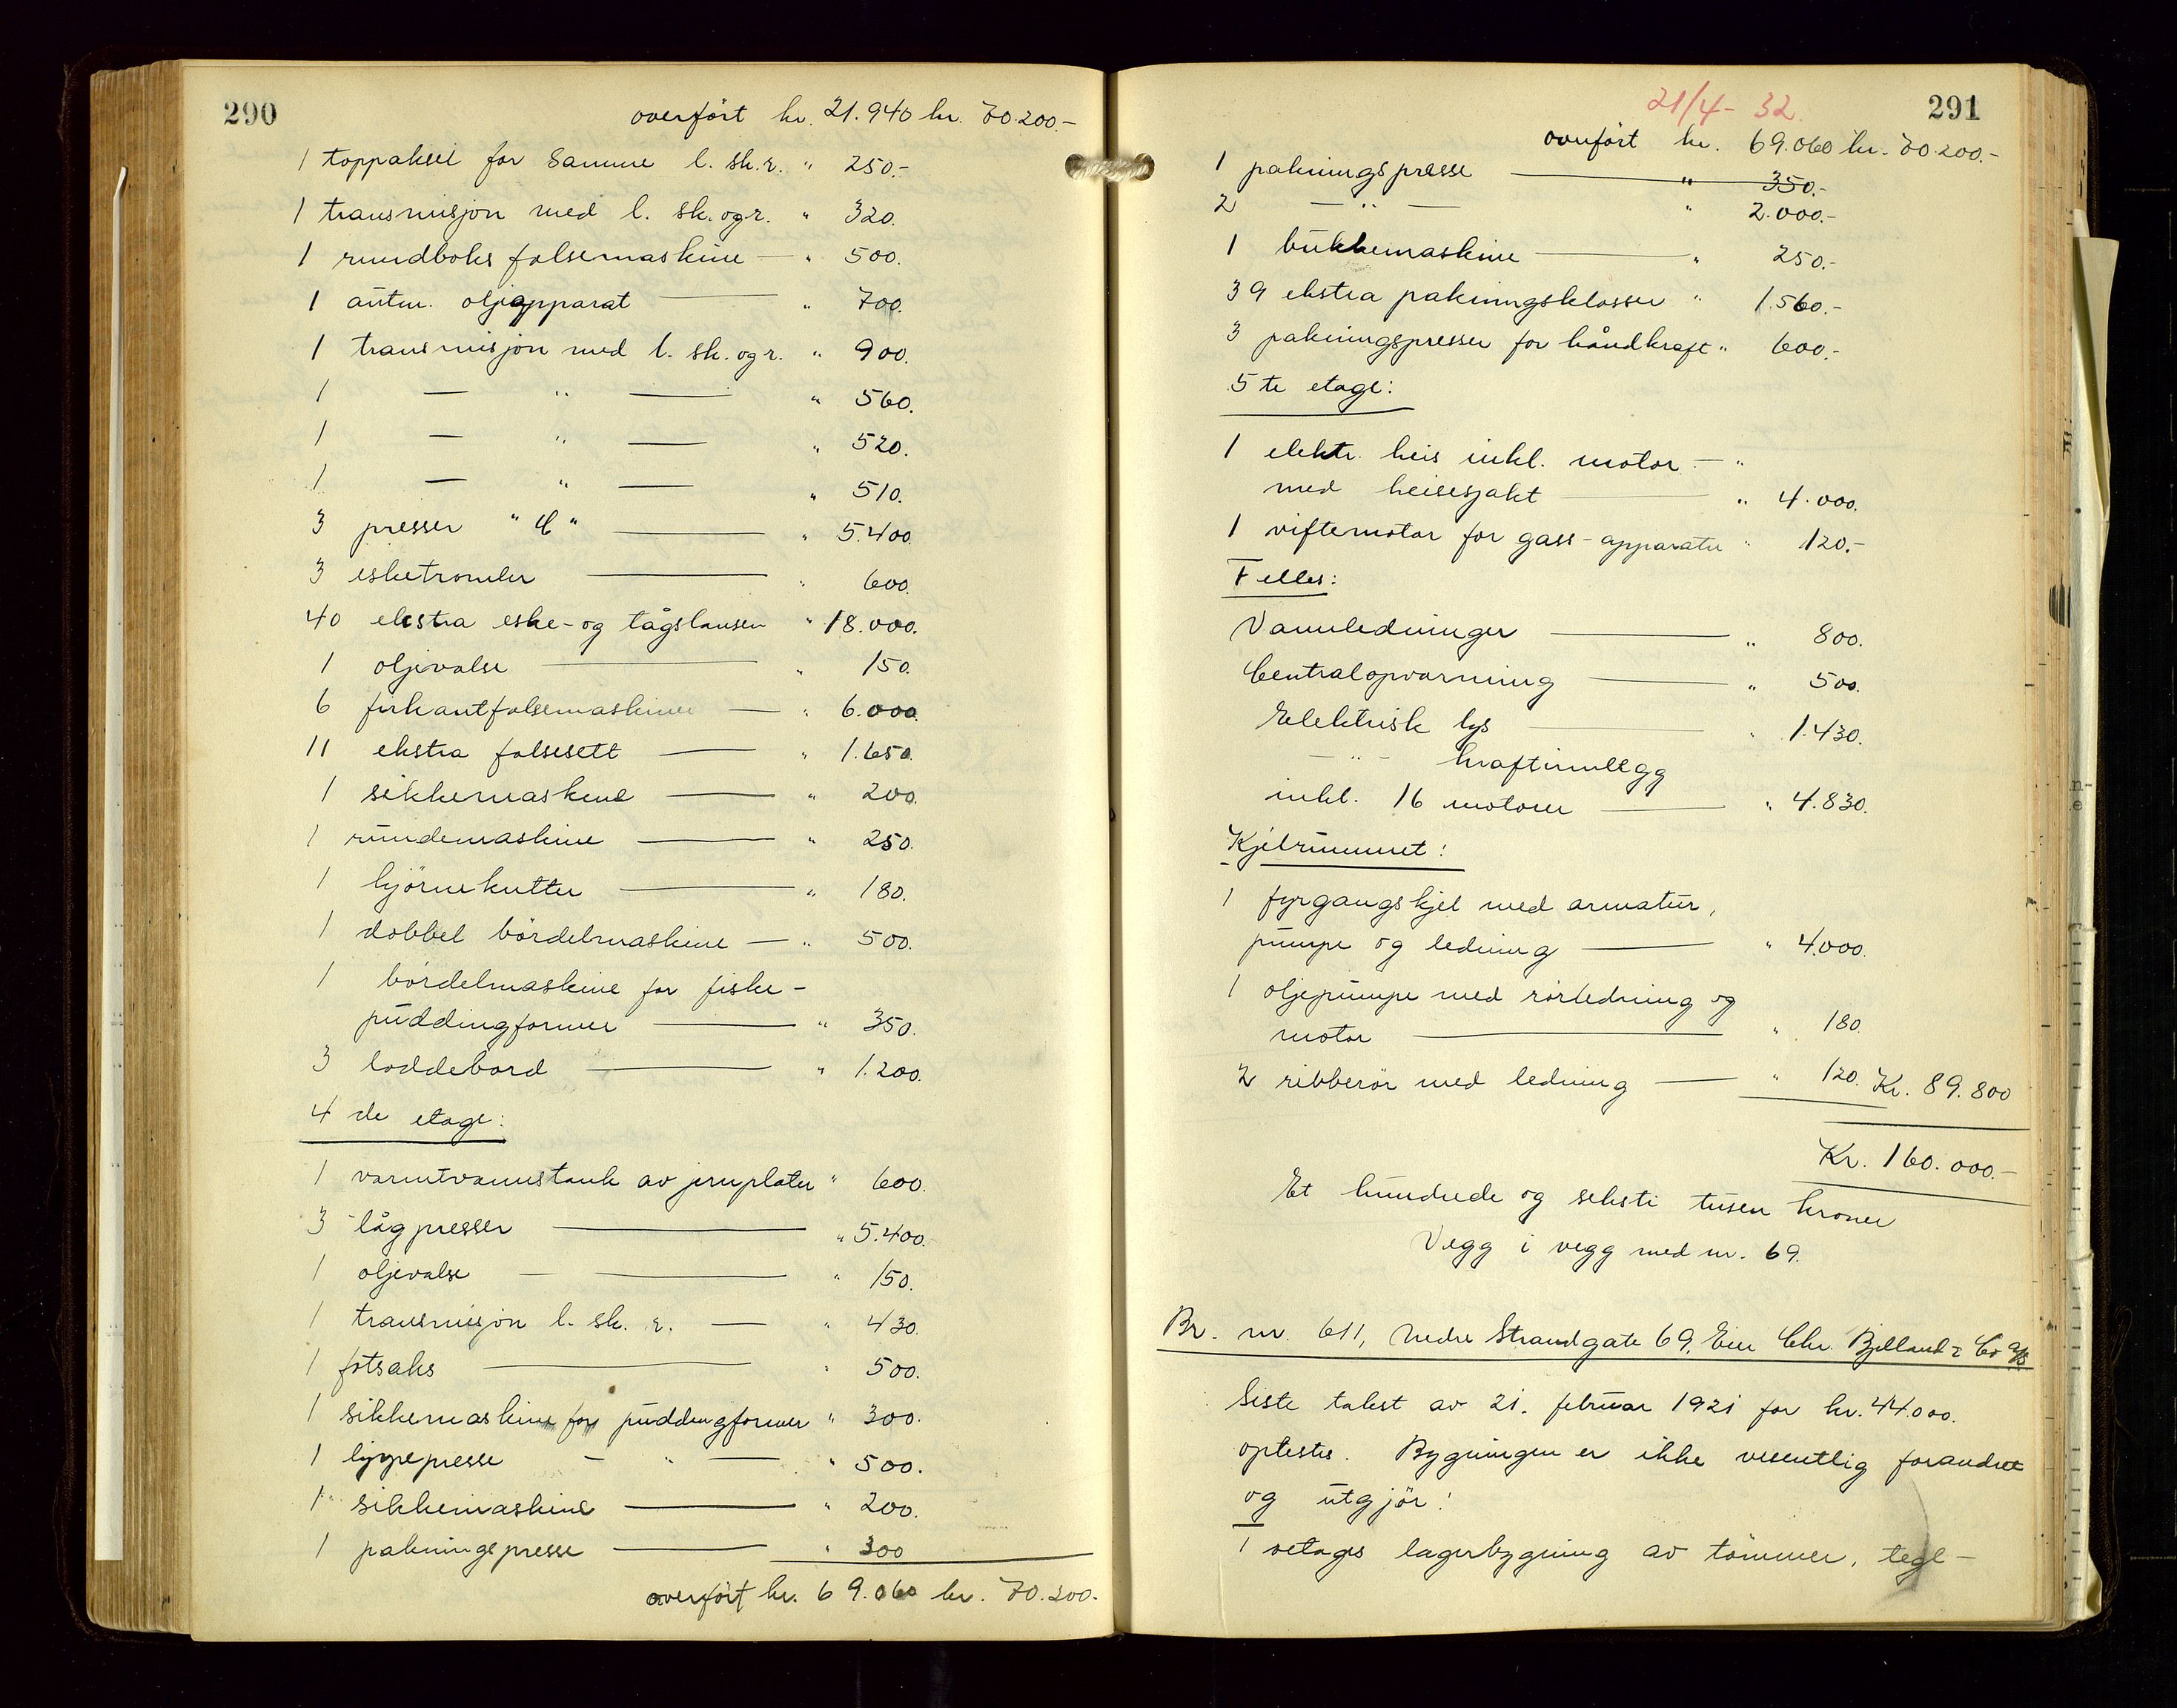 290
overført kr. 21.940 kr. 70.200.-
1 toppaksel for samme l. sk. r. " 250.-
1 transmisjon med l. sk. og r. " 320.
1 rundboks falsemaskine — " 500.
1 autm. oljeapparat — " 700.
1 transmisjon med l. sk. og r. " 900.
1 — " — " 560.
1 — " — " 520.
1 — " — " 510.
3 presser " — " 5.400.
3 esketromler — " 600.
40 ekstra eske- og lågstanser " 18.000.
1 oljevalse — " 150.
6 firkantfalsemaskiner — " 6.000.
11 ekstra falsesett — " 1.650.
1 sikkemaskine — " 200.
1 rundemaskine — " 250.
1 hjørnekutter — " 180.
1 dobbel børdelmaskine — " 500.
1 børdelmaskine for fiske-
puddingformer — " 350.
3 loddebord — " 1.200.
4 de etage:
1 varmtvannstank av jernplater " 600.
3 lågpresser — " 5.400.
1 oljevalse — — " 150.
1 transmisjon l. sk. r. — " 430.
1 fotsaks — " 500.
1 sikkemaskine for puddingformer " 300.
1 lyppepresse — " — " 500.
1 sikkemaskine — " 200.
1 pakningspresse — " 300
overført kr. 69.060 kr. 70.200.-
21/4-32.
291
overført kr. 69.060 kr. 70.200.-
1 pakningspresse — " 350.-
2 — " — " 2.000.-
1 bukkemaskine — " 250.-
39 ekstra pakningsklosser " 1.560.-
3 pakningspresser for håndkraft " 600.-
5 te etage:
1 elektr. heis inkl. motor — "
med heisesjakt — " 4.000.
1 viftemotor for gass-apparater " 120.-
Felles:
Vannledninger — " 800.
Centralopvarming — " 500.
Elektrisk lys — " 1.430.
— " — kraftinnlegg
inkl. 16 motorer — " 4.830.
Kjelrummet:
1 fyrgangskjel med armatur,
pumpe og ledning — " 4.000.
1 oljepumpe med rørledning og
motor — " 180.
2 ribberør med ledning — " 120. Kr. 89.800
Kr. 160.000.-
Et hundrede og seksti tusen kroner
Vegg i vegg med nr. 69.
Br. nr. 611, Nedre Strandgate 69. Eier Chr. Bjelland & Co a/s
Siste takst av 21. februar 1921 for kr. 44.000.
oplestes. Bygningen er ikke vesentlig forandret
og utgjør:
1 etages lagerbygning av tømmer, tegl-